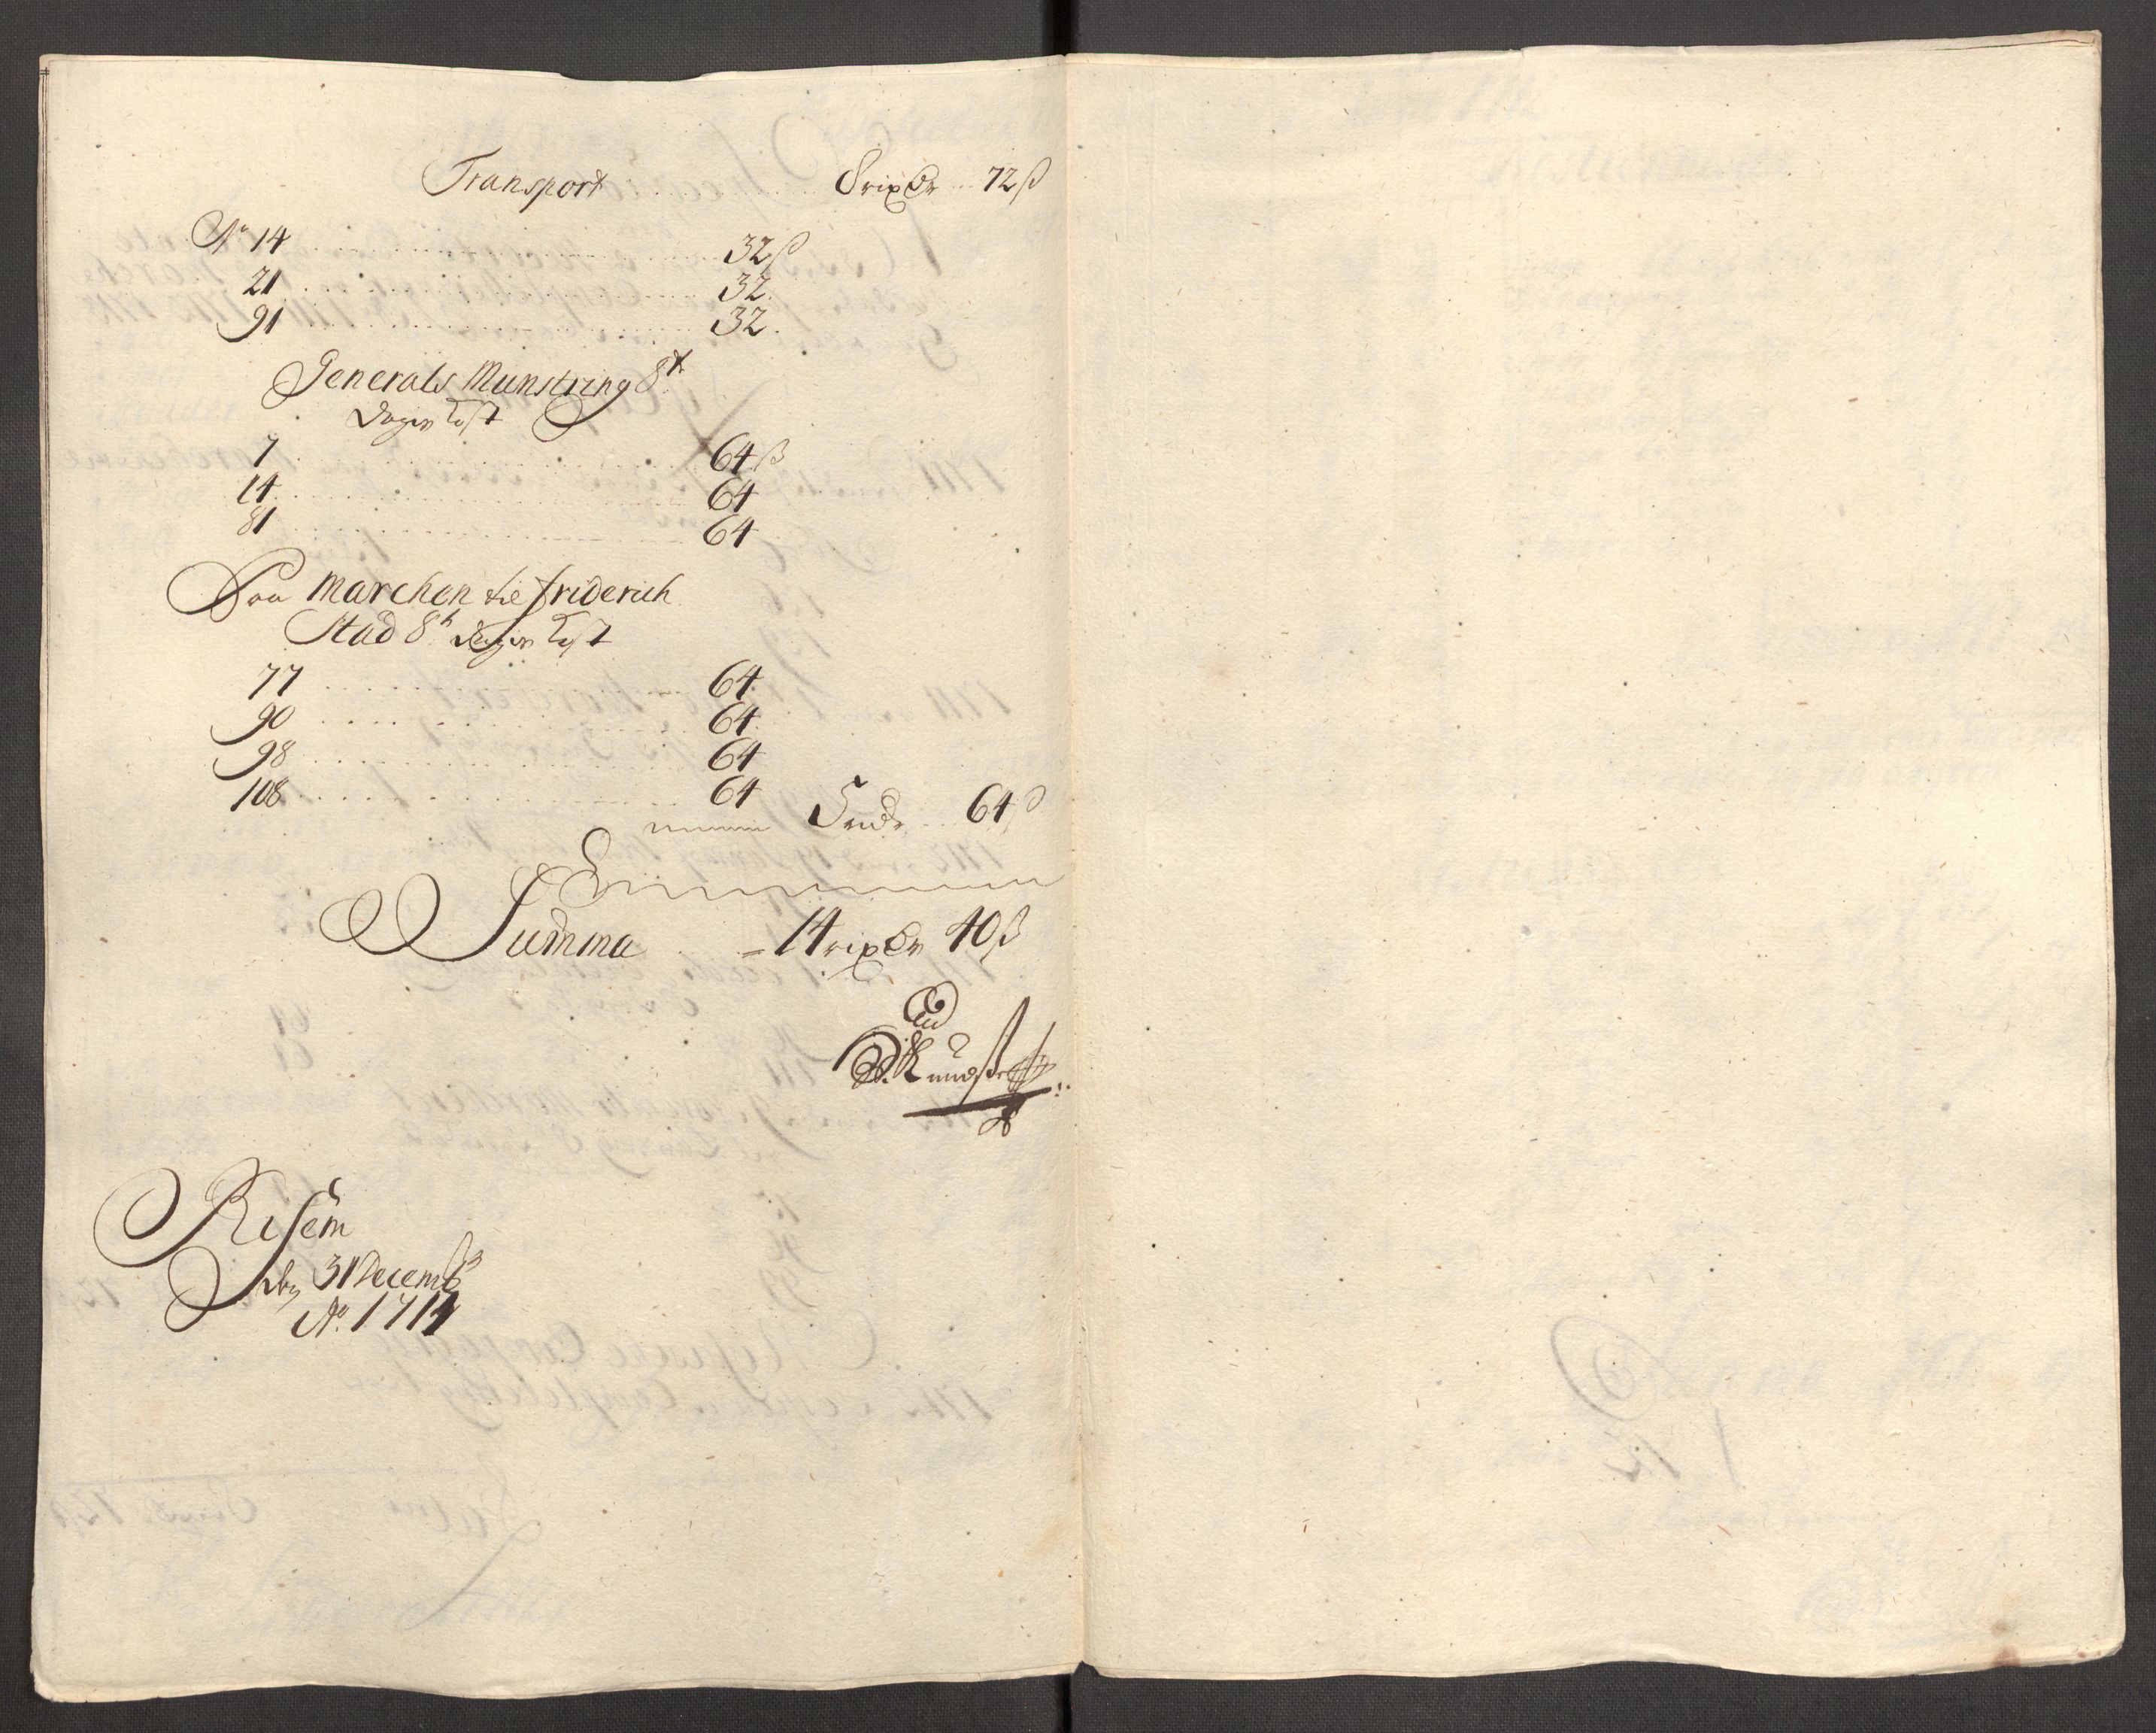 Transport ........ 8 rixdr .. 72 ß
No 14 ........ 32 ß
21 ........ 32
91 ........ 32
Generals Munstring 8t
dages kost
7 ........ 64 ß
14 ........ 64
81 ........ 64
Paa Marchen til Friderich
Stad 8t dages kost
77 ........ 64
90 ........ 64
98 ........ 64
108 ........ 64 5 rdr .. 64 ß
Summa = 14 rixdr 40 ß
Risem
den 31 Decembr
Ao. 1714